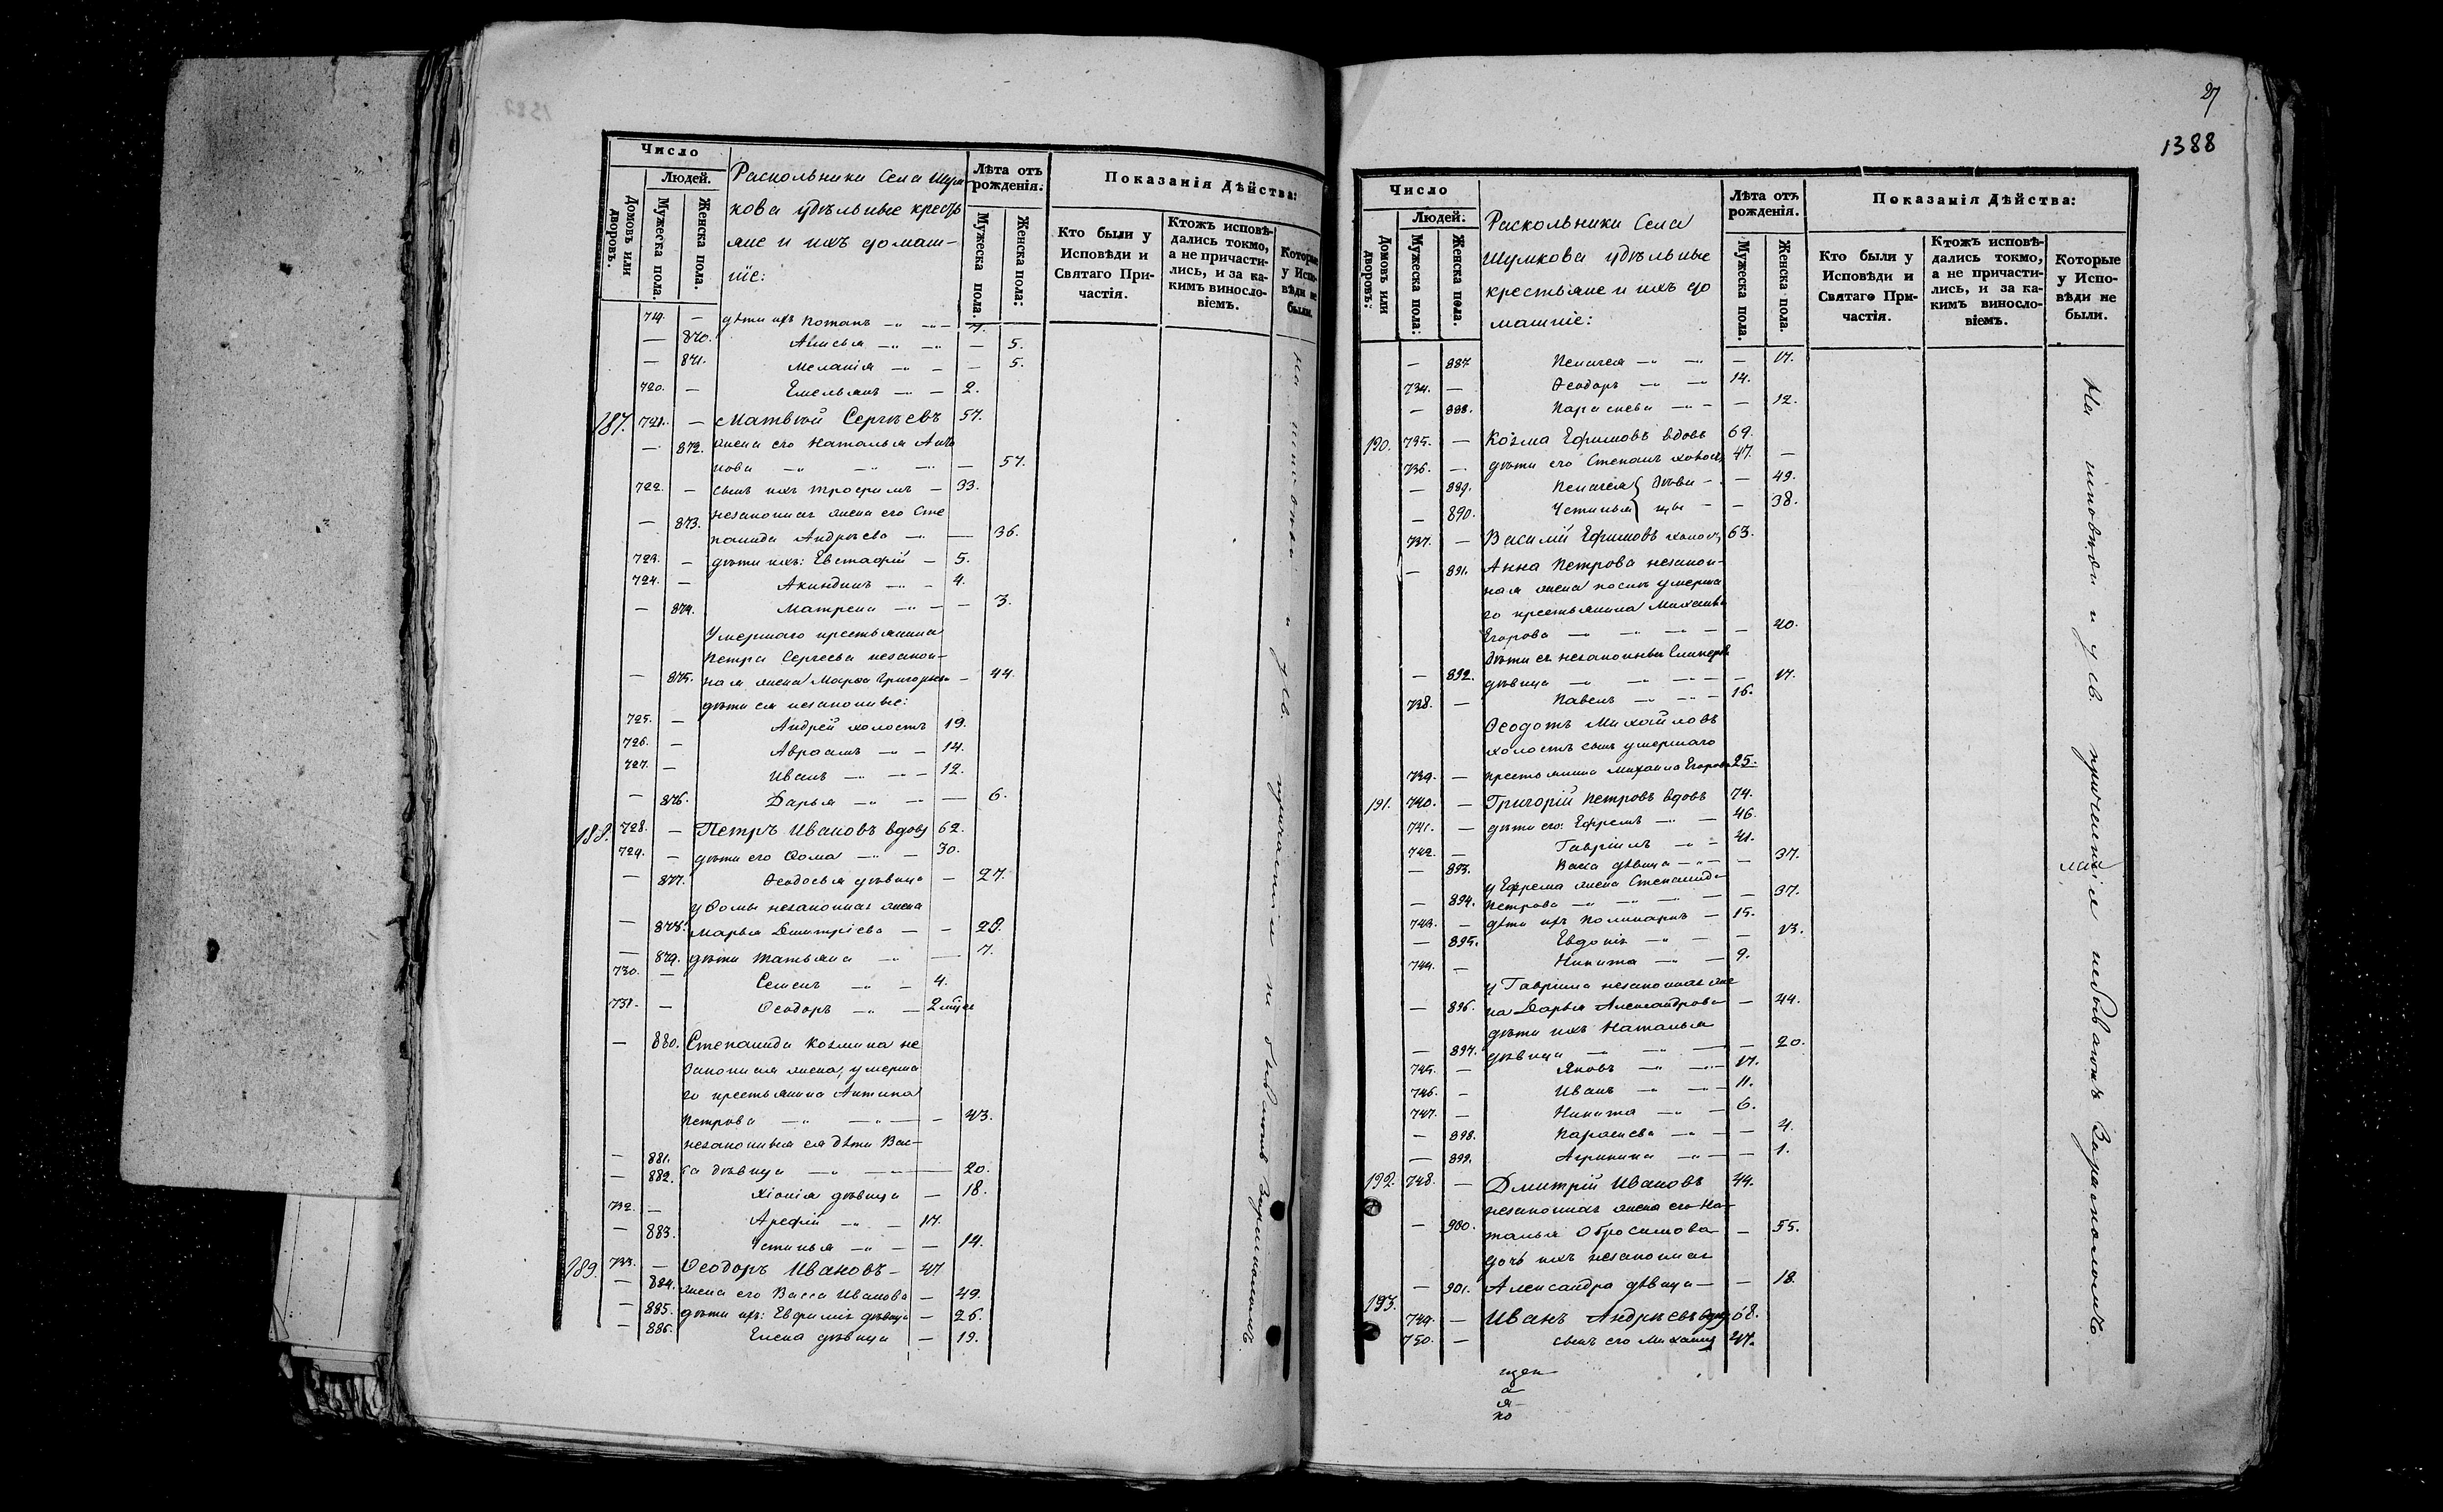 Число
Людей.
Домовъ или дворовъ.
Мужеска пола.
Женска пола.
Раскольники Села Шум
кова удѣльные кресть
яне и ихъ домаш-
ніе:
Лѣта отъ рожденія.
Мужеска пола.
Женска пола:
Показанія Дѣйства:
Кто были у Исповѣди и Святаго При-частія.
Ктожъ исповѣ-дались токмо, а не причасти-лись, и за ка-кимъ винословіемъ.
Которые у Испо-вѣди не были.
719. — дѣти ихъ Потапъ 7.
— 870. Анисья — 5.
— 871. Меланія — 5.
720. — Емельянъ — 2.
187. 721. — Матвѣй Сергѣевъ 57.
— 872. жена его Наталья Анто
нова — 57.
722. — сынъ ихъ Трофимъ — 33.
— 873. незаконная жена его Сте
панида Андрѣева — 36.
723. — дѣти ихъ: Евстафій — 5.
724. — Акиндинъ — 4.
— 874. Матрена — 3.
Умершаго крестьянина
Петра Сергеева незакон-
— 875. ная жена Марѳа Григорьева — 44.
дѣти ея незаконные:
725. — Андрей холостъ 19.
726. — Авраамъ — 14.
727. — Иванъ — 12.
— 876. Дарья — 6.
188. 728. — Петръ Ивановъ вдовъ 62.
729. — дѣти его Ѳома — 30.
— 877. Ѳеодосья дѣвица — 27.
у Ѳомы незаконная жена
— 878. Марья Дмитріева — 28.
— 879. дѣти Татьяна — 7.
730. — Семенъ — 4.
731. — Ѳеодоръ — 2 мѣся
— 880. Степанида Козмина не
законная жена, умерша
го крестьянина Антипа
Петрова — 43.
незаконныя ея дѣти Вас-
— 881. са дѣвица — 20.
— 882. Хіонія дѣвица — 18.
732. — Арефій — 17.
— 883. Устинья — 14.
189. 733. — Ѳеодоръ Ивановъ — 47
— 884. жена его Васса Иванова — 49.
— 885. дѣти ихъ: Евфимія дѣвица — 26.
— 886. Елена дѣвица — 19.
27
1388
Число
Людей.
Домовъ или дворовъ:
Мужеска пола:
Женска пола.
Раскольники Села
Шумкова удѣльные
крестьяне и ихъ до
машніе:
Лѣта отъ рожденія.
Мужеска пола
Женска пола.
Показанія Дѣйства:
Кто были у Исповѣди и Святаго При-частія.
Ктожъ исповѣ-дались токмо, а не причасти-лись, и за ка-кимъ винословіемъ.
Которые у Испо-вѣди не были.
— 887. Пелагея — 17.
734. — Ѳеодоръ — 14.
— 888. Параскева — 12.
190. 735. — Козма Ефимовъ вдовъ 69.
736. — дѣти его Степанъ холост 47. —
— 889. Пелагея дѣви — 49.
— 890. Устинья цы — 38.
737. — Василій Ефимовъ холост 63.
— 891. Анна Петрова незакон-
ная жена послѣ умерша
го крестьянина Михаила
Егорова — 40.
дѣти ея незаконны
— 892. дѣвица — 17.
738. — Павелъ — 16.
Ѳеодотъ Михайловъ
холостъ сынъ умершаго
739. — крестьянина Михаила Егорова 25.
191. 740. — Григорій Петровъ вдовъ 74.
741. — дѣти его: Ефремъ — 46.
742. — Гавріилъ — 41.
— 893. Васса дѣвица — 37.
у Ефрема жена Степанида
— 894. Петрова — 37.
743. — дѣти ихъ Поликарпъ — 15.
— 895. Евдокія — 13.
744. — Никита — 9.
у Гавріила незаконная же
— 896. на Дарья Александрова — 44.
дѣти ихъ Наталья
— 897. дѣвица — 20.
745. — Яковъ — 17.
746. — Иванъ — 11.
747. — Никита — 6.
— 898. Параскева — 4.
— 899. Агрипина — 1.
192. 748. — Дмитрій Ивановъ 44.
незаконная жена его На-
— 900. талья Обросимова — 55.
дочь ихъ незаконная
— 901. Александра дѣвица — 18.
193. 749. — Иванъ Андрѣевъ вдов 68.
750. — сынъ его Михаилъ 27.
На исповѣди и у св. причастія небываютъ За расколомъ.